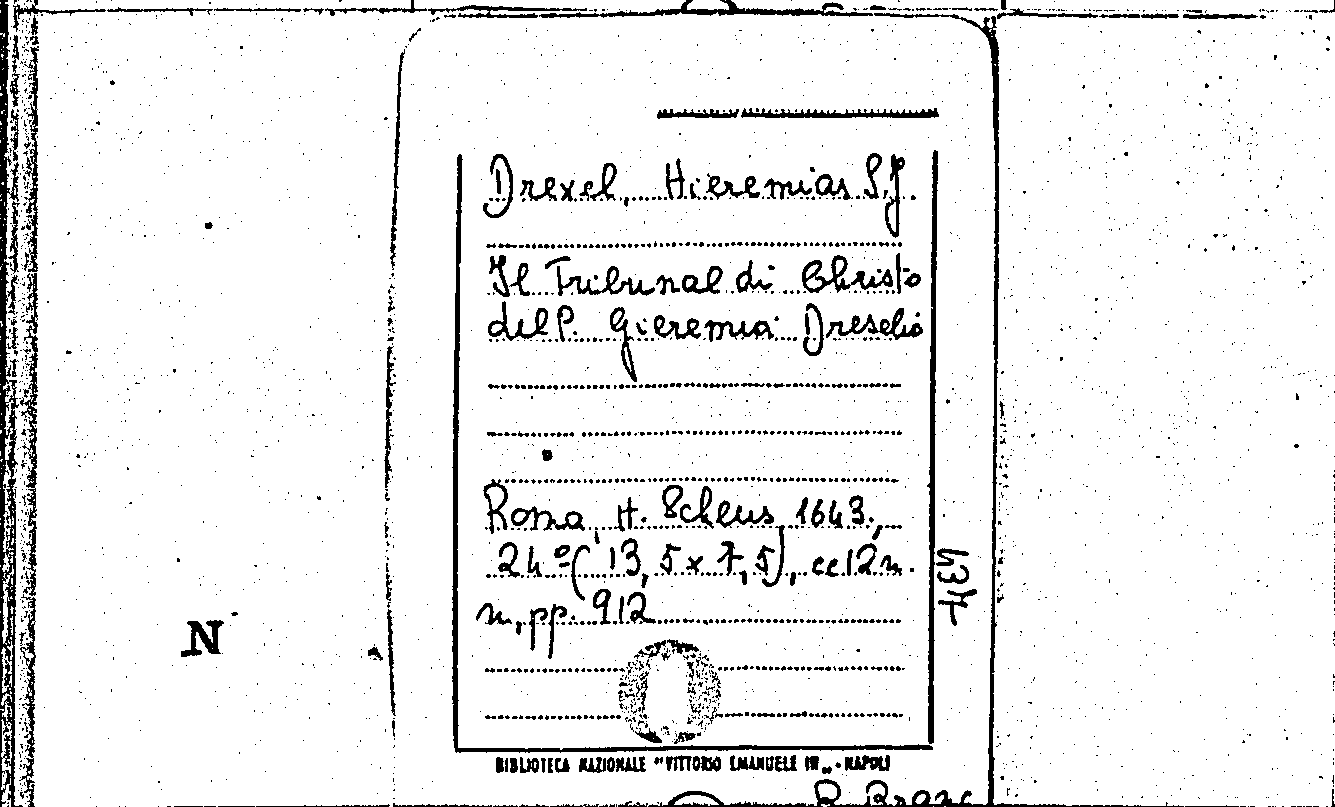 Drexel, Hieremias S.J.
Il Tribunal di Christo
del P. Gieremia Dreselio
Roma, H. Scheus, 1643.,
24º (13,5 x 7,5), cc 12 n.
n., pp. 912
434
N
BIBLIOTECA NAZIONALE "VITTORIO EMANUELE III" - NAPOLI